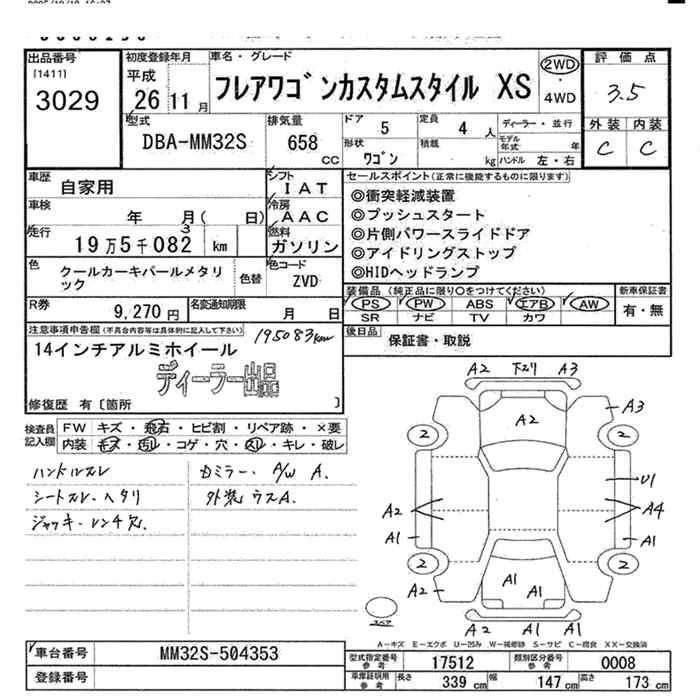 出品番号
[1411]
3029
初度登録年月
平成
26 11 月
車名・グレード
フレアワゴンカスタムスタイル XS
2WD
・
4WD
評価点
3.5
外装 内装
C C
型式
DBA-MM32S
排気量
658
CC
ドア 5
定員 4 人
形状 ワゴン
積載 kg
ディーラー・並行
モデル年式 年
ハンドル 左・右
車歴 自家用
車検 年 月( 日)
走行 19万5千082 km
3
シフト IAT
冷房 AAC
燃料 ガソリン
色 クールカーキパールメタリ
ック
色替
色コード ZVD
R券 9,270 円
名変通知期限 月 日
セールスポイント(正常に機能するものに限ります)
◎衝突軽減装置
◎プッシュスタート
◎片側パワースライドドア
◎アイドリングストップ
◎HIDヘッドランプ
装備品(純正品に限り○をつけてください)
PS PW ABS エアB AW
SR ナビ TV カワ
新車保証書
有・無
後日品 保証書・取説
注意事項申告欄(不具合内容等は具体的に記入して下さい)
195083km
14インチアルミホイール
ディーラー出品
修復歴 有〔箇所 〕
検査員
記入欄
FW キズ・飛石・ヒビ割・リペア跡・×要
内装 キズ・汚レ・コゲ・穴・スレ・キレ・破レ
ハンドルスレ
シートスレ・ヘタリ
ジャッキ・レンチ欠
Dミラー、A/W A.
外装ウスA.
A2 下スリ A3
A2
A3
2 2
U1
A2 A4
A1 A1
2 2
A2 A1 A1 A2
A2 A1
スペア
A-キズ E-エクボ U-凹ミ W-補修跡 S-サビ C-腐食 XX-交換済
車台番号 MM32S-504353
登録番号
型式指定番号
参考
17512
類別区分番号
参考
0008
車庫証明用
参考
長さ 339 cm
幅 147 cm
高さ 173 cm